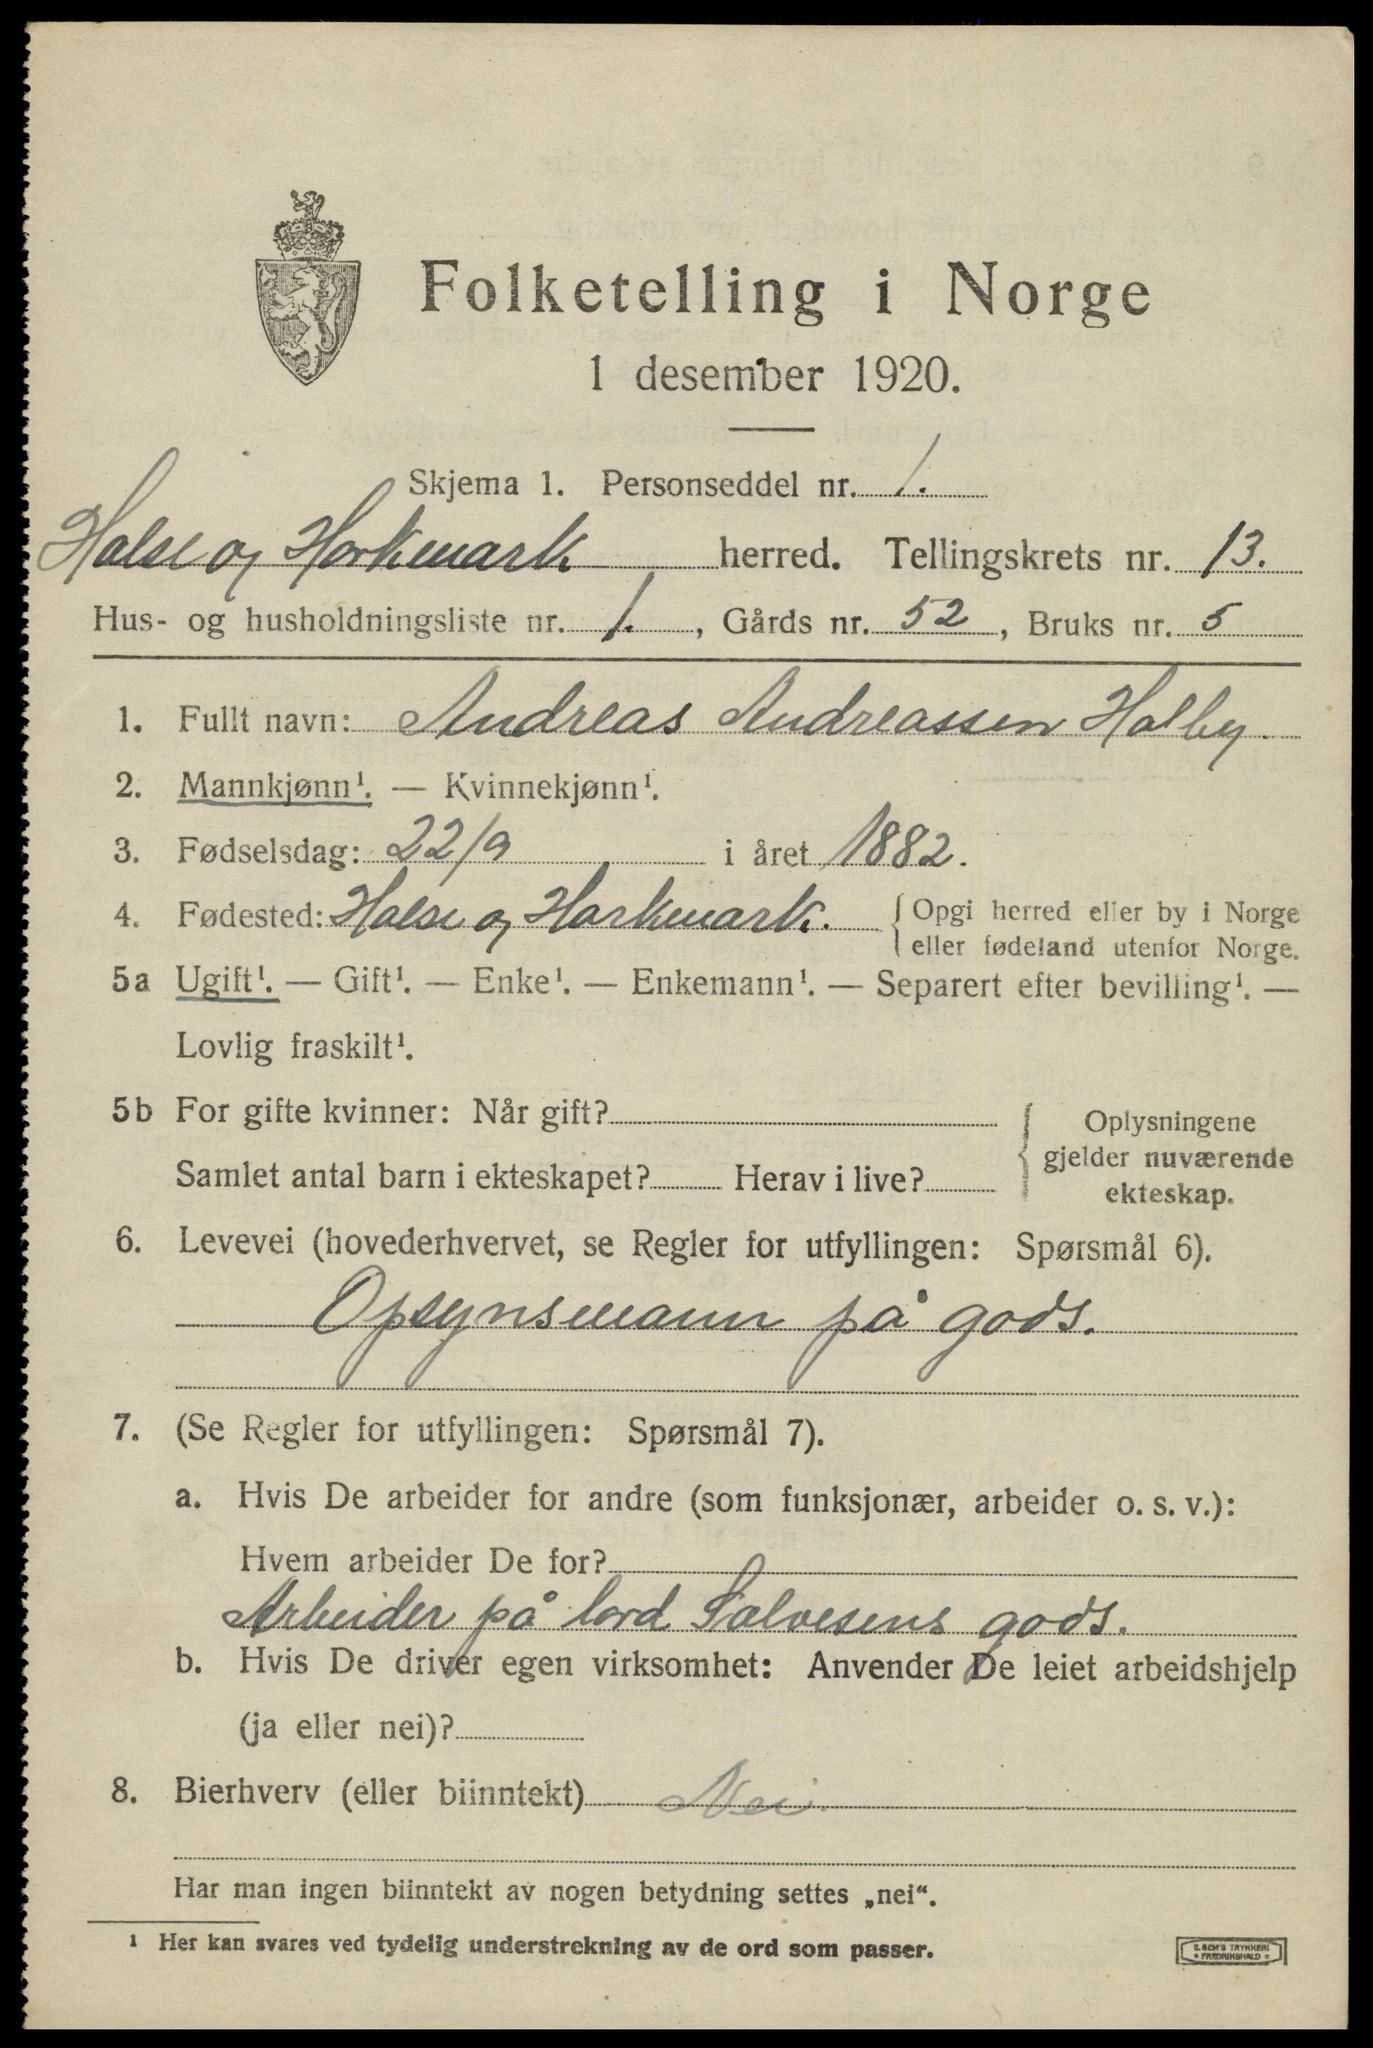 Folketelling i Norge
1 desember 1920.
Skjema 1. Personseddel nr. 1.
Halse og Harkmark herred. Tellingskrets nr. 13.
Hus- og husholdningsliste nr. 1., Gårds nr. 52, Bruks nr. 5
1. Fullt navn: Andreas Andreassen Holby.
2. Mannkjønn¹. — Kvinnekjønn¹.
3. Fødselsdag: 22/9 i året 1882.
4. Fødested: Halse og Harkmark. { Opgi herred eller by i Norge
eller fødeland utenfor Norge.
5a Ugift¹. — Gift¹. — Enke¹. — Enkemann¹. — Separert efter bevilling¹. —
Lovlig fraskilt¹.
5b For gifte kvinner: Når gift?
Samlet antal barn i ekteskapet? Herav i live?
{ Oplysningene
gjelder nuværende
ekteskap.
6. Levevei (hovederhvervet, se Regler for utfyllingen: Spørsmål 6).
Opsynsmann på gods.
7. (Se Regler for utfyllingen: Spørsmål 7).
a. Hvis De arbeider for andre (som funksjonær, arbeider o. s. v.):
Hvem arbeider De for?
Arbeider på lord Salvesens gods.
b. Hvis De driver egen virksomhet: Anvender De leiet arbeidshjelp
(ja eller nei)?
8. Bierhverv (eller biinntekt) Nei.
Har man ingen biinntekt av nogen betydning settes „nei“.
¹ Her kan svares ved tydelig understrekning av de ord som passer.
E. SEM'S TRYKKERI
• FREDRIKSHALD •